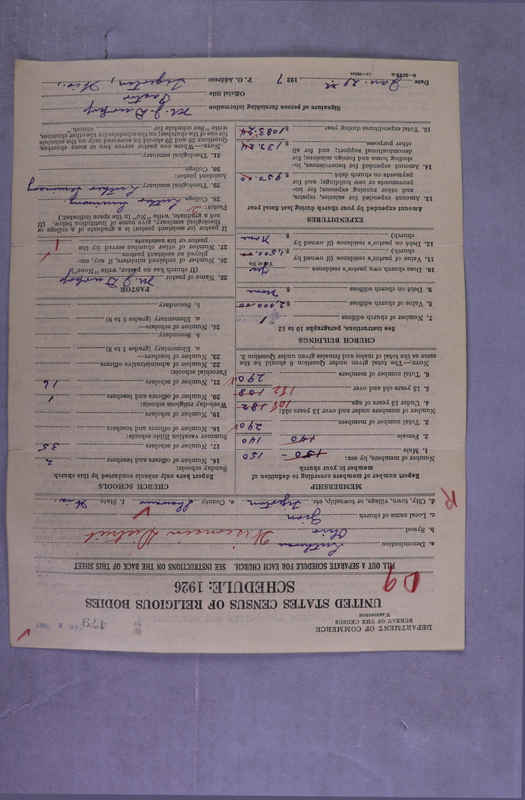 DEPARTMENT OF COMMERCE
BUREAU OF THE CENSUS
WASHINGTON
479
UNITED STATES CENSUS OF RELIGIOUS BODIES
SCHEDULE: 1926
D9
FILL OUT A SEPARATE SCHEDULE FOR EACH CHURCH. SEE INSTRUCTIONS ON THE BACK OF THIS SHEET
a. Denomination Lutheran
b. Synod Ohio Wisconsin District
c. Local name of church
d. City, town, village, or township, etc. Tigerton e. County Shawano f. State Wis
R
MEMBERSHIP
Report of members according to definition of member in your church
Number of members, by sex:
1. Male 150 150
2. Female 140 140
3. Total number of members 290
Number of members under and over 13 years old:
4. Under 13 years of age 108 182
5. 13 years old and over 182 108
6. Total number of members 290
NOTE.—The total given under Question 6 should be the same as the total of males and females given under Question 3.
CHURCH BUILDINGS
See instructions, paragraphs 10 to 12
7. Number of church edifices 1
8. Value of church edifices $2,000.00
9. Debt on church edifices $ None
10. Does church own pastor's residence Yes
Yes or No
11. Value of pastor's residence (if owned by church) $1,500.00
12. Debt on pastor's residence (if owned by church) $ None
EXPENDITURES
Amount expended by your church during last fiscal year
13. Amount expended for salaries, repairs, and other running expenses; for improvements or new buildings; and for payments on church debt $ 950.00
14. Amount expended for benevolences, including home and foreign missions; for denominational support; and for all other purposes $ 133.24
15. Total expenditures during year $1083.24
CHURCH SCHOOLS
Report here only schools conducted by this church
Sunday schools:
16. Number of officers and teachers 2
17. Number of scholars 35
Summer vacation Bible schools:
18. Number of officers and teachers
19. Number of scholars
Week-day religious schools:
20. Number of officers and teachers 1
21. Number of scholars 16
Parochial schools:
22. Number of administrative officers
23. Number of teachers—
a. Elementary (grades 1 to 8)
b. Secondary
24. Number of scholars—
a. Elementary (grades 1 to 8)
b. Secondary
PASTOR
25. Name of pastor
(If church has no pastor, write "None")
26. Number of ordained ministers, if any, employed as assistant pastors
27. Number of other churches served by the pastor or his assistants 1
If pastor (or assistant pastor) is a graduate of a college or theological seminary, give name of institution below. (If not a graduate, write "No" in the space intended.)
Pastor:
28. College
29. Theological seminary Luther Seminary
Assistant pastor:
30. College
31. Theological seminary
NOTE.—When a pastor serves two or more churches, Questions 28 and 29 should be answered only on the schedule for one of the churches; on the schedules for the other churches, write "See schedule for church."
Signature of person furnishing information
Official title Pastor
P. O. Address Tigerton, Wis.,
Date Jan. 29, 1927